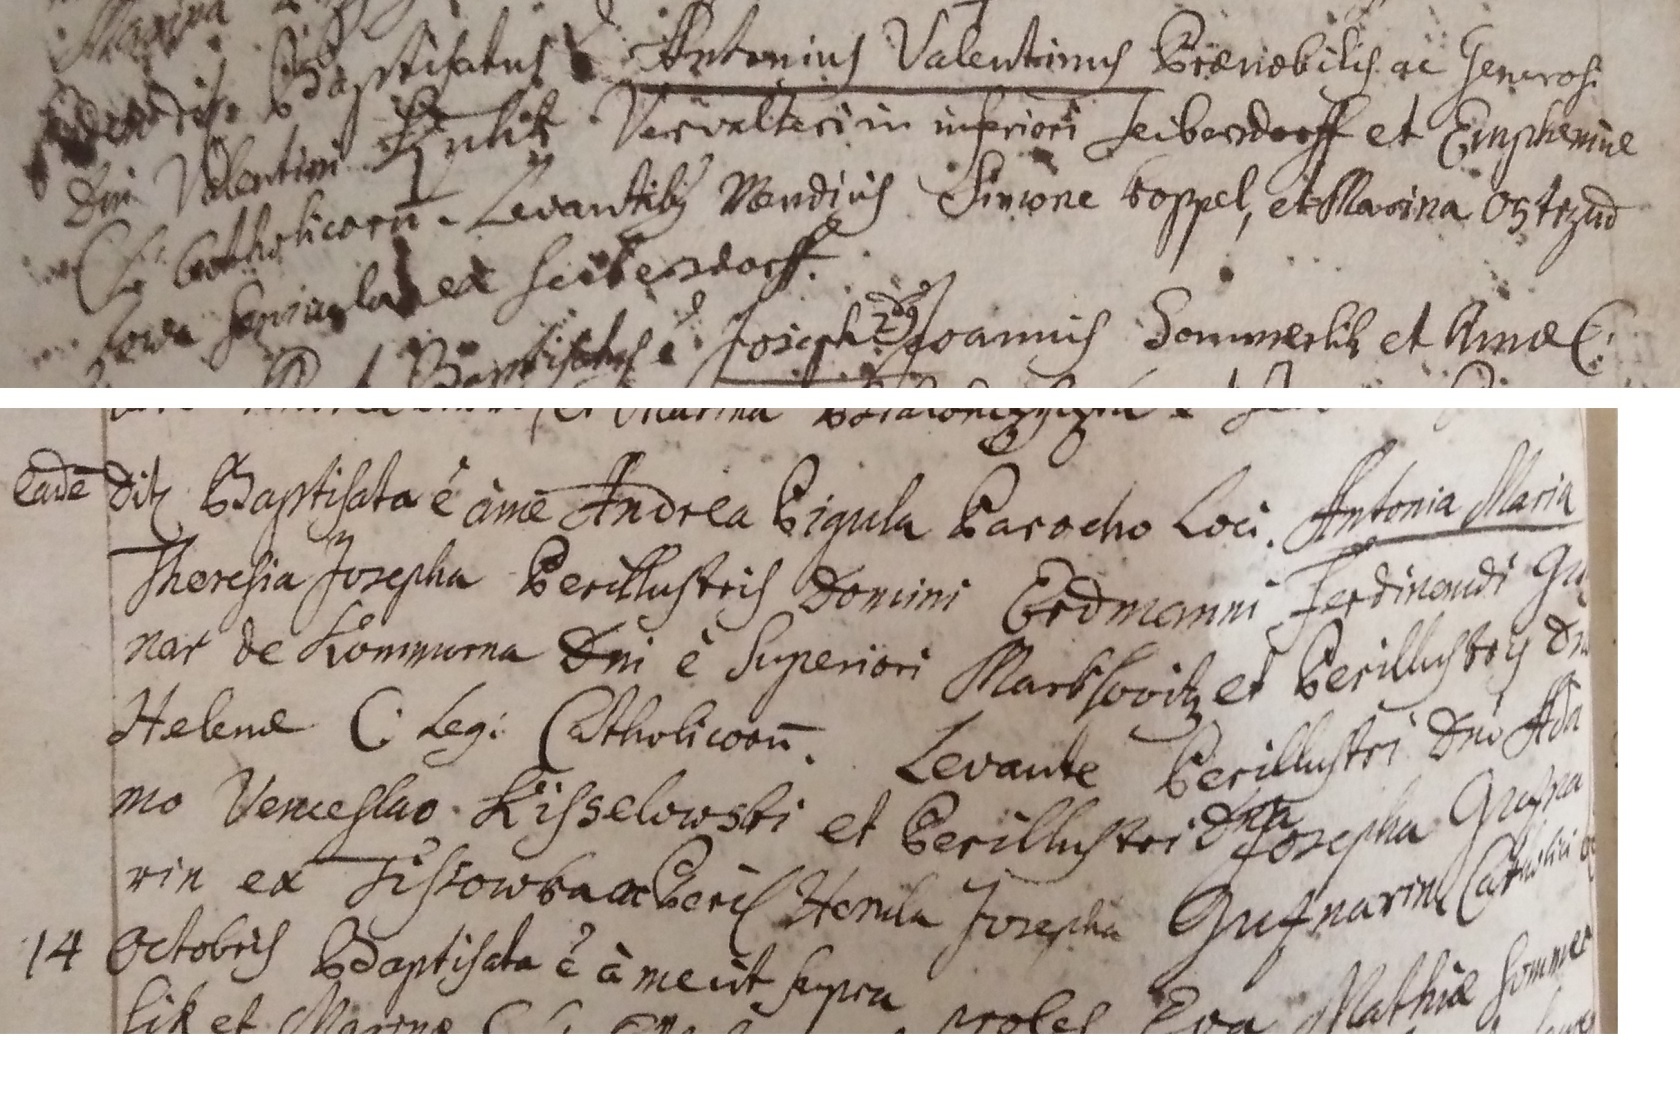 Marina
Baptisatus Antonius Valentinus Prænobilis ac Generosi
Dni Valentini Verwalteri in inferiori Seibersdorff et Emphemiæ
C. L. Catholicorū. Levantiby Mendicis Simone Koppel, et Marina Ostrzud
kowa ex Seibersdorff.
Baptisatus ē Joseph Joannis Sommerlik et Annæ C:
et Marina
Eadē die Baptisata ē à me Andrea Pigula Parocho Loci. Antonia Maria
Theresia Josepha Perillustris Domini Erdmanni Ferdinandi Gu
nar de Kommurna Dni è Superiori Marklowitz et Perillustris Dn
Helenæ C: Leg: Catholicorū. Levante Perillustri Dno Ada
mo Venceslao Kisselowski et Perillustri Dna Josepha Gusna
rin ex Tissowka ac Peril Herula Josepha Gusnarin Catholici
14 Octobris Baptisata ē à me ut supra proles Eva Mathiæ Sommer
lik et Marinæ C. L.